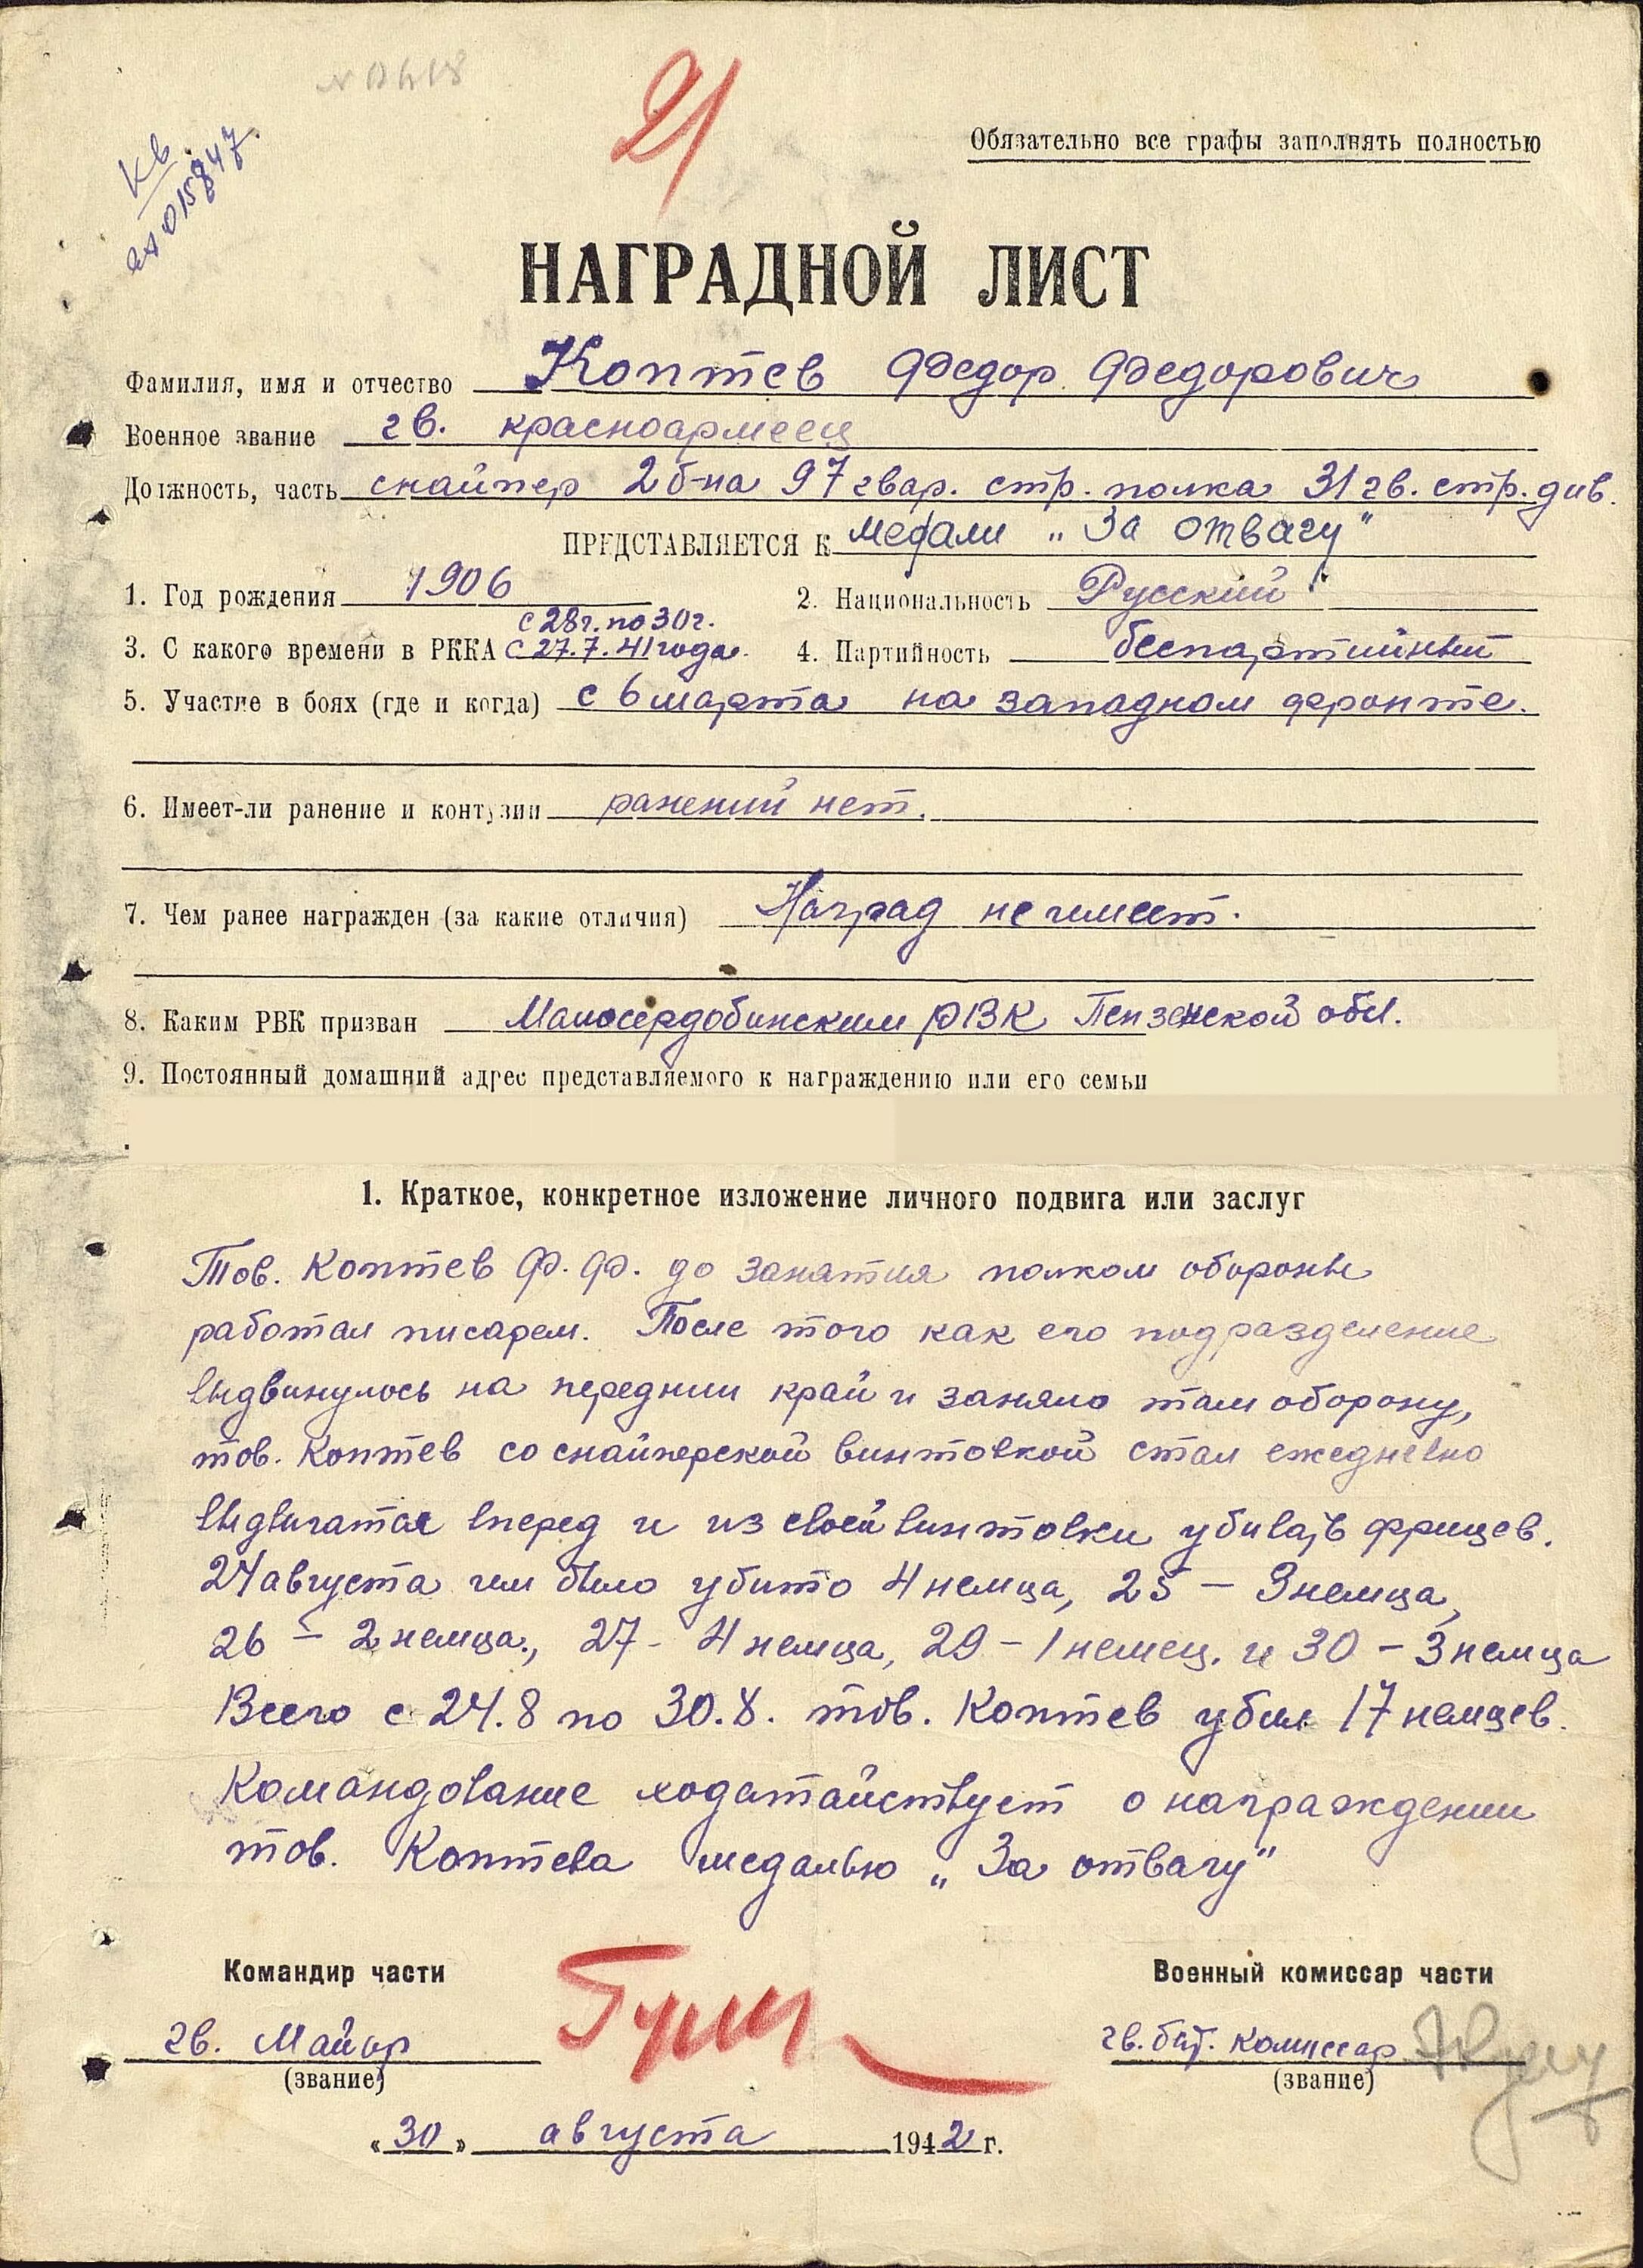 21
Кв
ел 015847.
Обязательно все графы заполнять полностью
НАГРАДНОЙ ЛИСТ
Фамилия, имя и отчество Коптев Федор Федорович
Военное звание гв. красноармеец
Должность, часть снайпер 2 б-на 97 гвар. стр. полка 31 гв. стр. див.
ПРЕДСТАВЛЯЕТСЯ К медали „За отвагу"
1. Год рождения 1906 2. Национальность Русский
с 28г. по 30г.
3. С какого времени в РККА с 27.7.41 года. 4. Партийность беспартийный
5. Участие в боях (где и когда) с 6 марта на западном фронте.
6. Имеет-ли ранение и контузии ранений нет.
7. Чем ранее награжден (за какие отличия) Наград не имеет.
8. Каким РВК призван Малосердобинским РВК Пензенской обл.
9. Постоянный домашний адрес представляемого к награждению или его семьи
1. Краткое, конкретное изложение личного подвига или заслуг
Тов. Коптев Ф. Ф. до занятия полком обороны
работал писарем. После того как его подразделение
выдвинулось на передний край и заняло там оборону,
тов. Коптев со снайперской винтовкой стал ежедневно
выдвигатся вперед и из своей винтовки убивать фрицев.
24 августа им было убито 4 немца, 25 – 3 немца,
26 – 2 немца., 27 - 4 немца, 29 – 1 немец. и 30 – 3 немца
Всего с 24.8 по 30.8. тов. Коптев убил 17 немцев.
Командование ходатайствует о награждении
тов. Коптева медалью „За отвагу"
Командир части Военный комиссар части
гв. Майор гв. бат. комиссар
(звание) (звание)
«30» августа 1942 г.